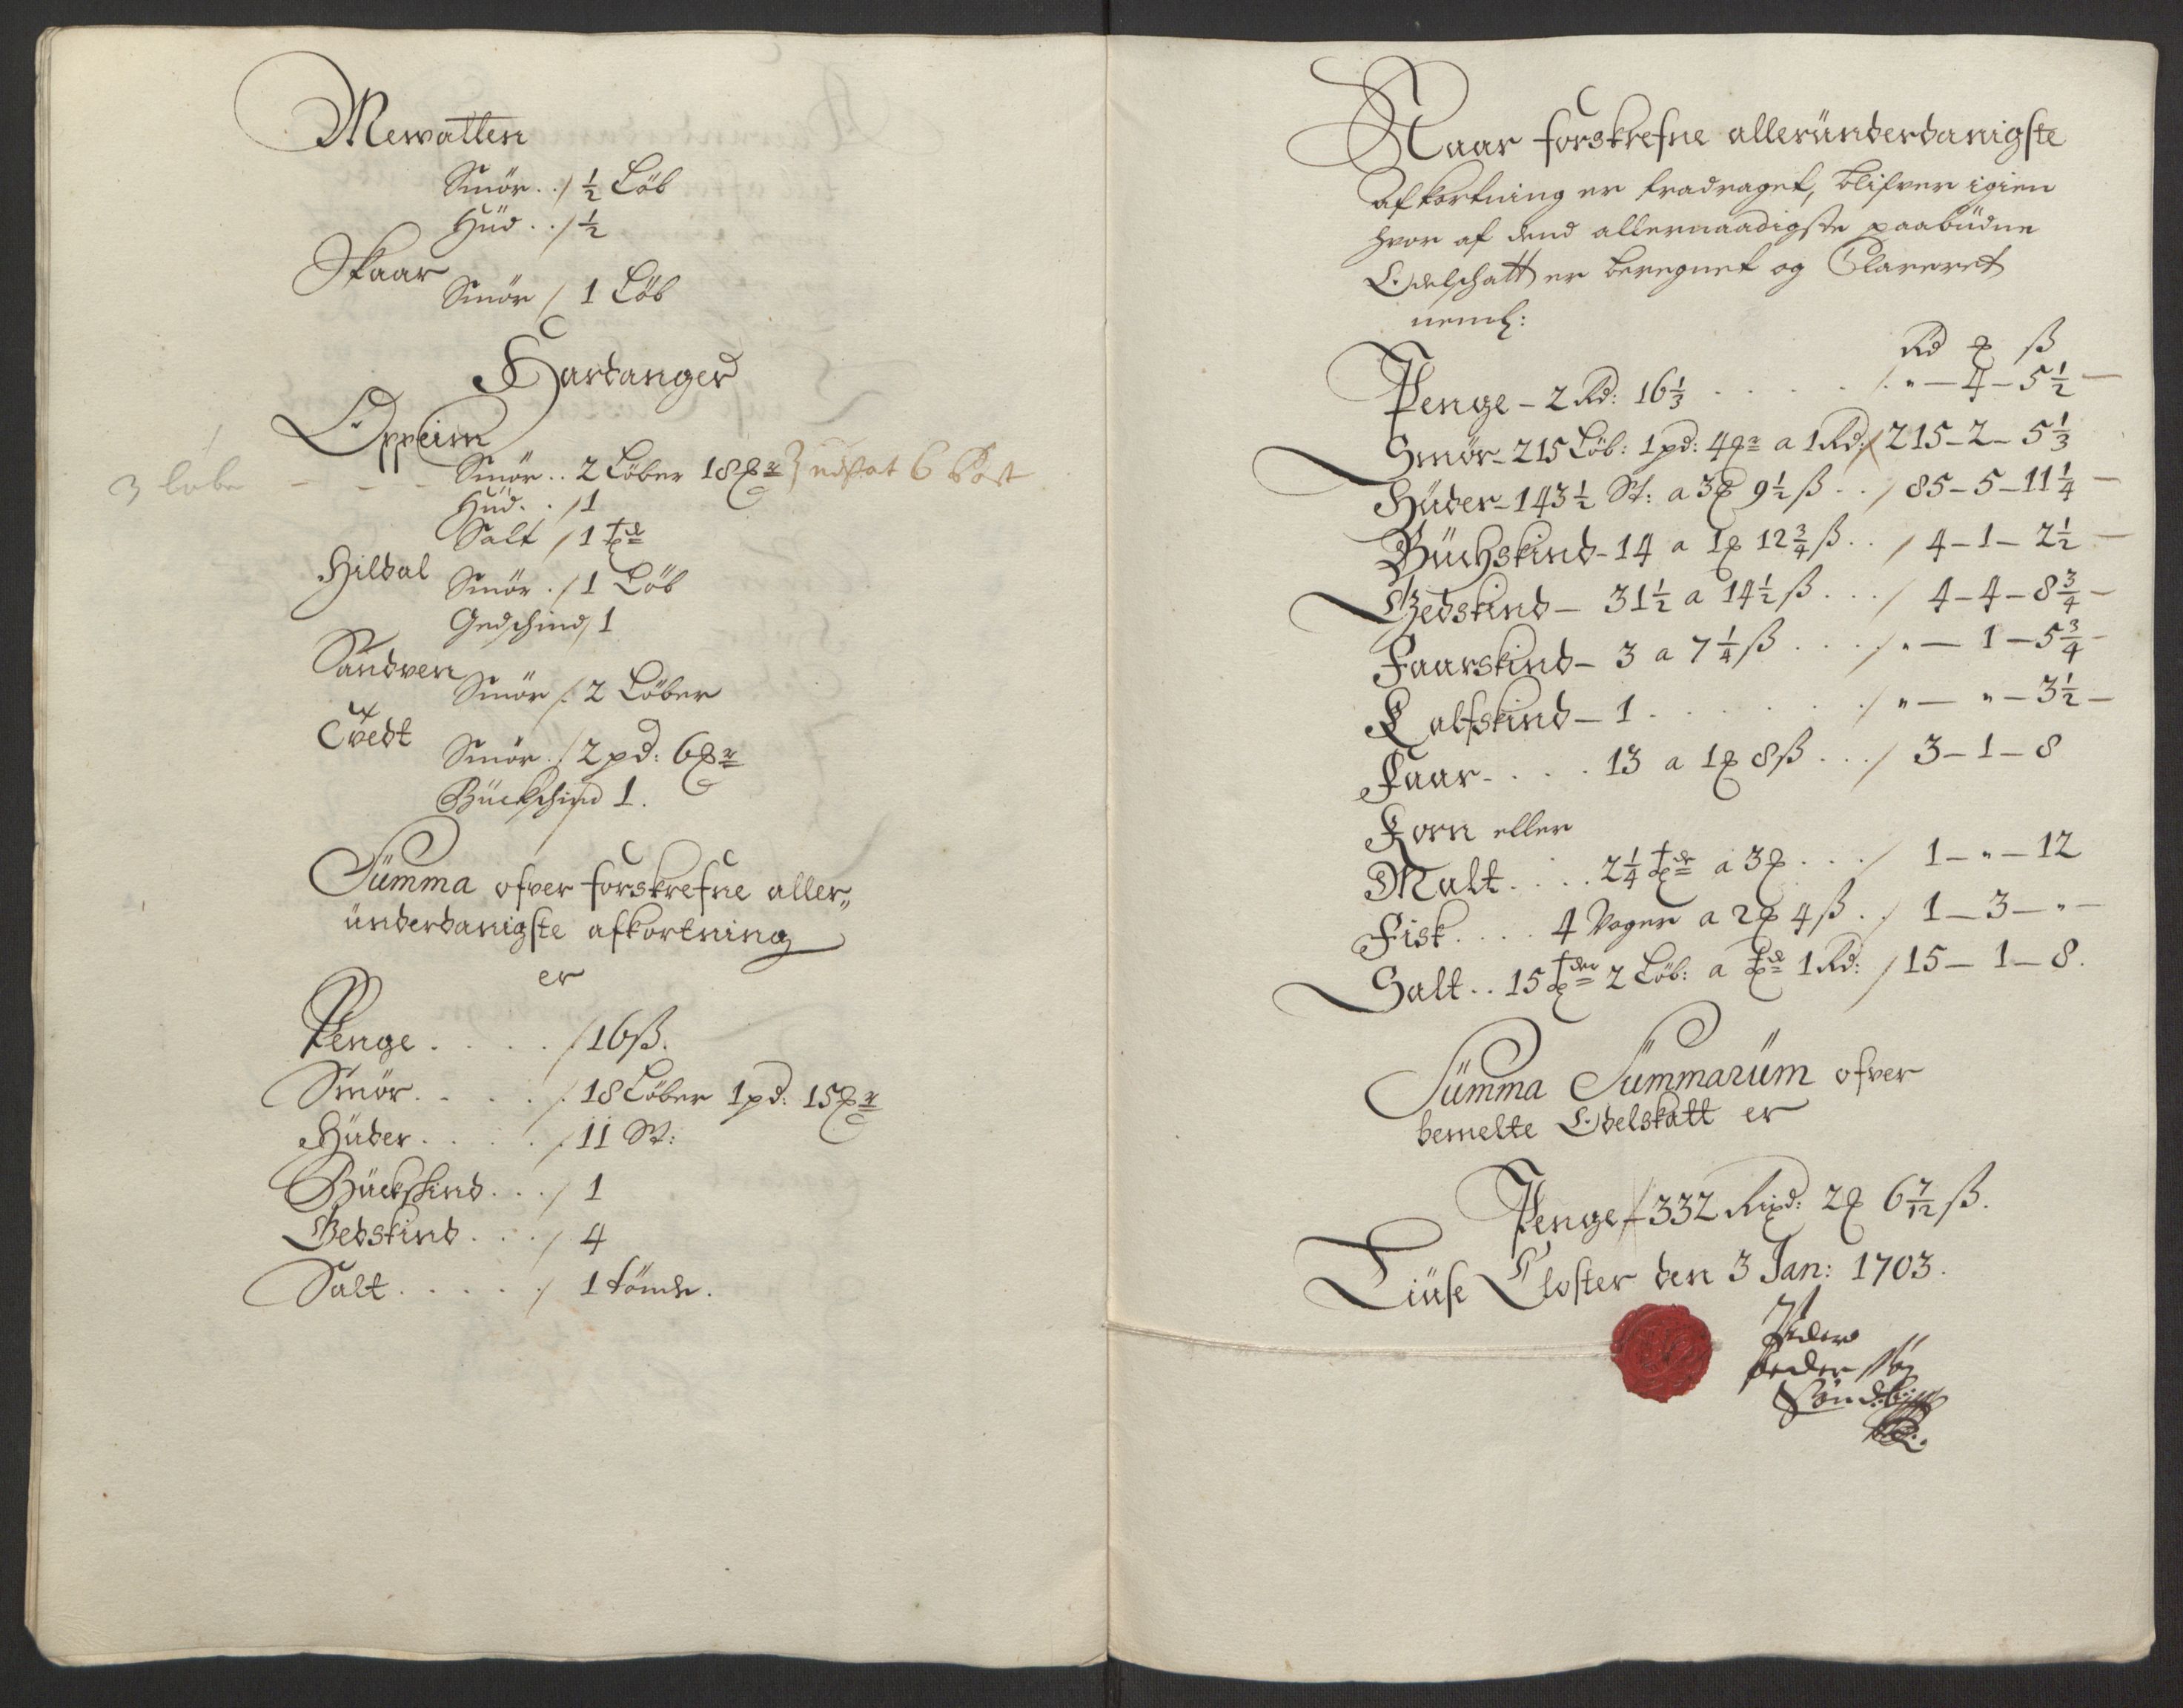 Mewatten
Smör . . / ½ Löb
Hüd . . / ½
Skaar
Smör / 1 Löb
Hardanger
Oppeim
3 löbe - - - Smör . . 2 Löber 18 udsat 6
Hüd . . / 1
Salt / 1 tde
Hildal Smör . / 1 Löb
Gedschind / 1
Sandven Smör /. 2 Löber
Tvedt Smör . / 2 pd: 6
Bückschind 1.
Summa ofver forskrefne aller„
ünderdanigste afkortning
er
Penge . . . . / 16 ß.
Smör . . . . /. 18 Löber 1 pd: 15
Hüder . . . . /. 11 St:
Bückskind . . . / 1
Gedskind . . . / 4
Salt . . . . . / 1 tönde.
Naar forskrefne alleründerdanigste
afkortning er fradraget, blifver igien
hvor af dend allernaadigste paabüdne
Odelschatt er beregnet og Clareret
neml:
Rd ß
Penge - 2 Rd: 16⅓ . . . . . /. „ — 4 — 5½ —
Smör - 215 Löb: 1 pd: 4 a 1 Rd: / 215 - 2 - 5⅓
Hüder - 143½ St: a 3 9½ ß . . / 85 - 5 - 11¼ —
Büchskind - 14 a 1 12¾ ß . . / 4 - 1 - 2½ —
Gedskind — 31½ a 14½ ß . . . / 4 - 4 - 8¾ —
Faarskind — 3 a 7¼ ß . . . / „ — 1 — 5¾ —
Calfskind — 1 . . . . . . / „ — „ — 3½ —
Faar . . . . 13 a 1 8 ß . . . / 3 - 1 - 8
Korn eller
Malt . . . . 2¼ tde a 3 . . . / 1 - „ - 12
Fisk . . . . 4 Voger a 2 4 ß . . / 1 - 3 - „ —
Salt . . 15 tder 2 Löb: a tde 1 Rd: / 15 - 1 - 8.
Summa Summarüm ofver
bemelte Odelskatt er
Penge / 332 Rixd: 2 6 7/12 ß.
Liüse Closter den 3 Jan: 1703.
Peder